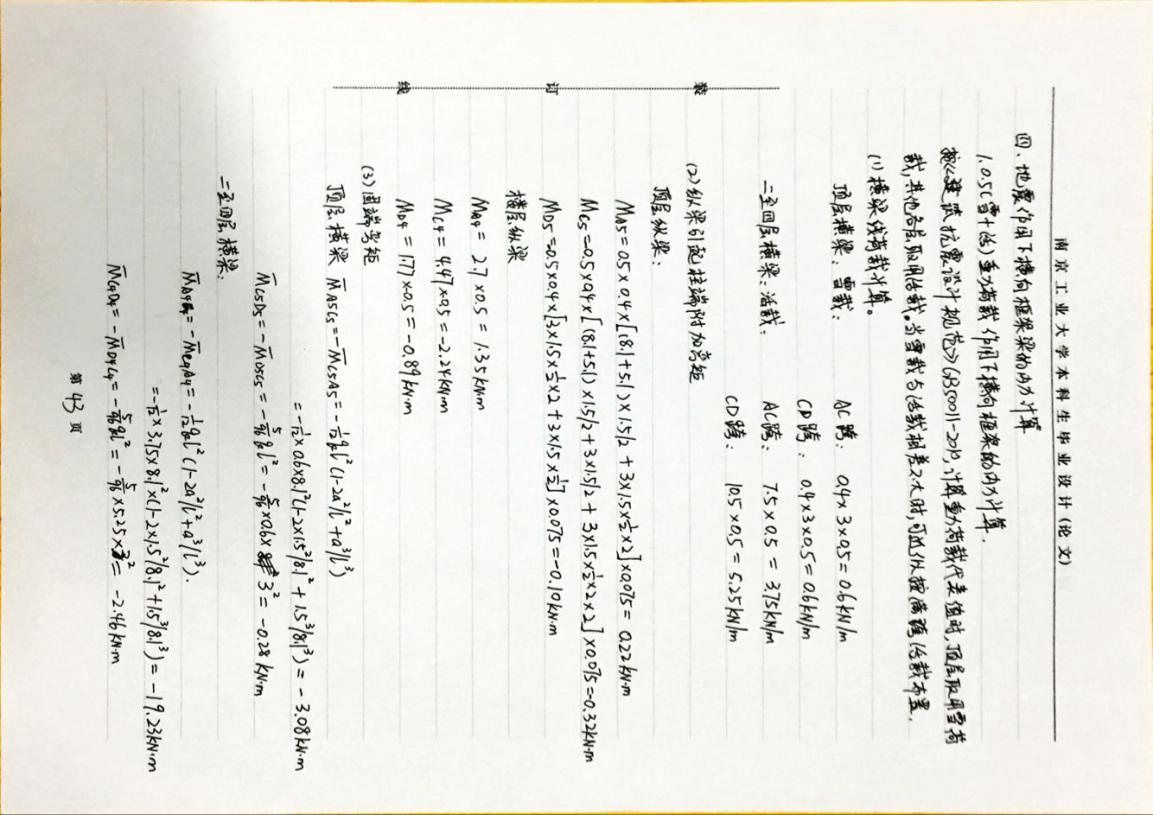 南京工业大学本科生毕业设计(论文)
四、地震作用下横向框架梁的内力计算
1. 0.5(雪+活)重力荷载作用下横向框架的内力计算.
按《建筑抗震设计规范》GB50011-2010,计算重力荷载代表值时,顶层取用雪荷
载,其他各层取用活载。当雪载与活载相差不大时,可近似按满跨活载布置.
(1) 横梁线荷载计算。
顶层横梁: 雪载: AC跨: 0.4×3×0.5=0.6kN/m
CD跨: 0.4×3×0.5=0.6kN/m
二至四层横梁: 活载: AC跨: 7.5×0.5=3.75kN/m
CD跨: 10.5×0.5=5.25kN/m
(2) 纵梁引起柱端附加弯矩
顶层纵梁:
MA5=0.5×0.4×[(8.1+5.1)×1.5/2+3×1.5×½×2]×0.075=0.22kN·m
MC5=-0.5×0.4×[(8.1+5.1)×1.5/2+3×1.5/2+3×1.5×½×2×2]×0.075=-0.32kN·m
MD5=-0.5×0.4×[3×1.5×½×2+3×1.5×½]×0.075=-0.10kN·m
楼层纵梁
MA4=2.7×0.5=1.35kN·m
MC4=4.47×0.5=-2.24kN·m
MD4=1.77×-0.5=-0.89kN·m
(3) 固端弯矩
顶层横梁 M̅A5C5=-M̅C5A5=-1/12ql²(1-2a²/l²+a³/l³)
=-1/12×0.6×8.1²(1-2×1.5²/8.1²+1.5³/8.1³)=-3.08kN·m
M̅C5D5=-M̅D5C5=-5/96ql²=-5/96×0.6×3²=-0.28kN·m
二至四层横梁:
M̅A4C4=-M̅C4A4=-1/12ql²(1-2a²/l²+a³/l³).
=-1/12×3.75×8.1²×(1-2×1.5²/8.1²+1.5³/8.1³)=-19.23kN·m
M̅C4D4=-M̅D4C4=-5/96ql²=-5/96×5.25×3²=-2.46kN·m
装
订
线
第 43 页